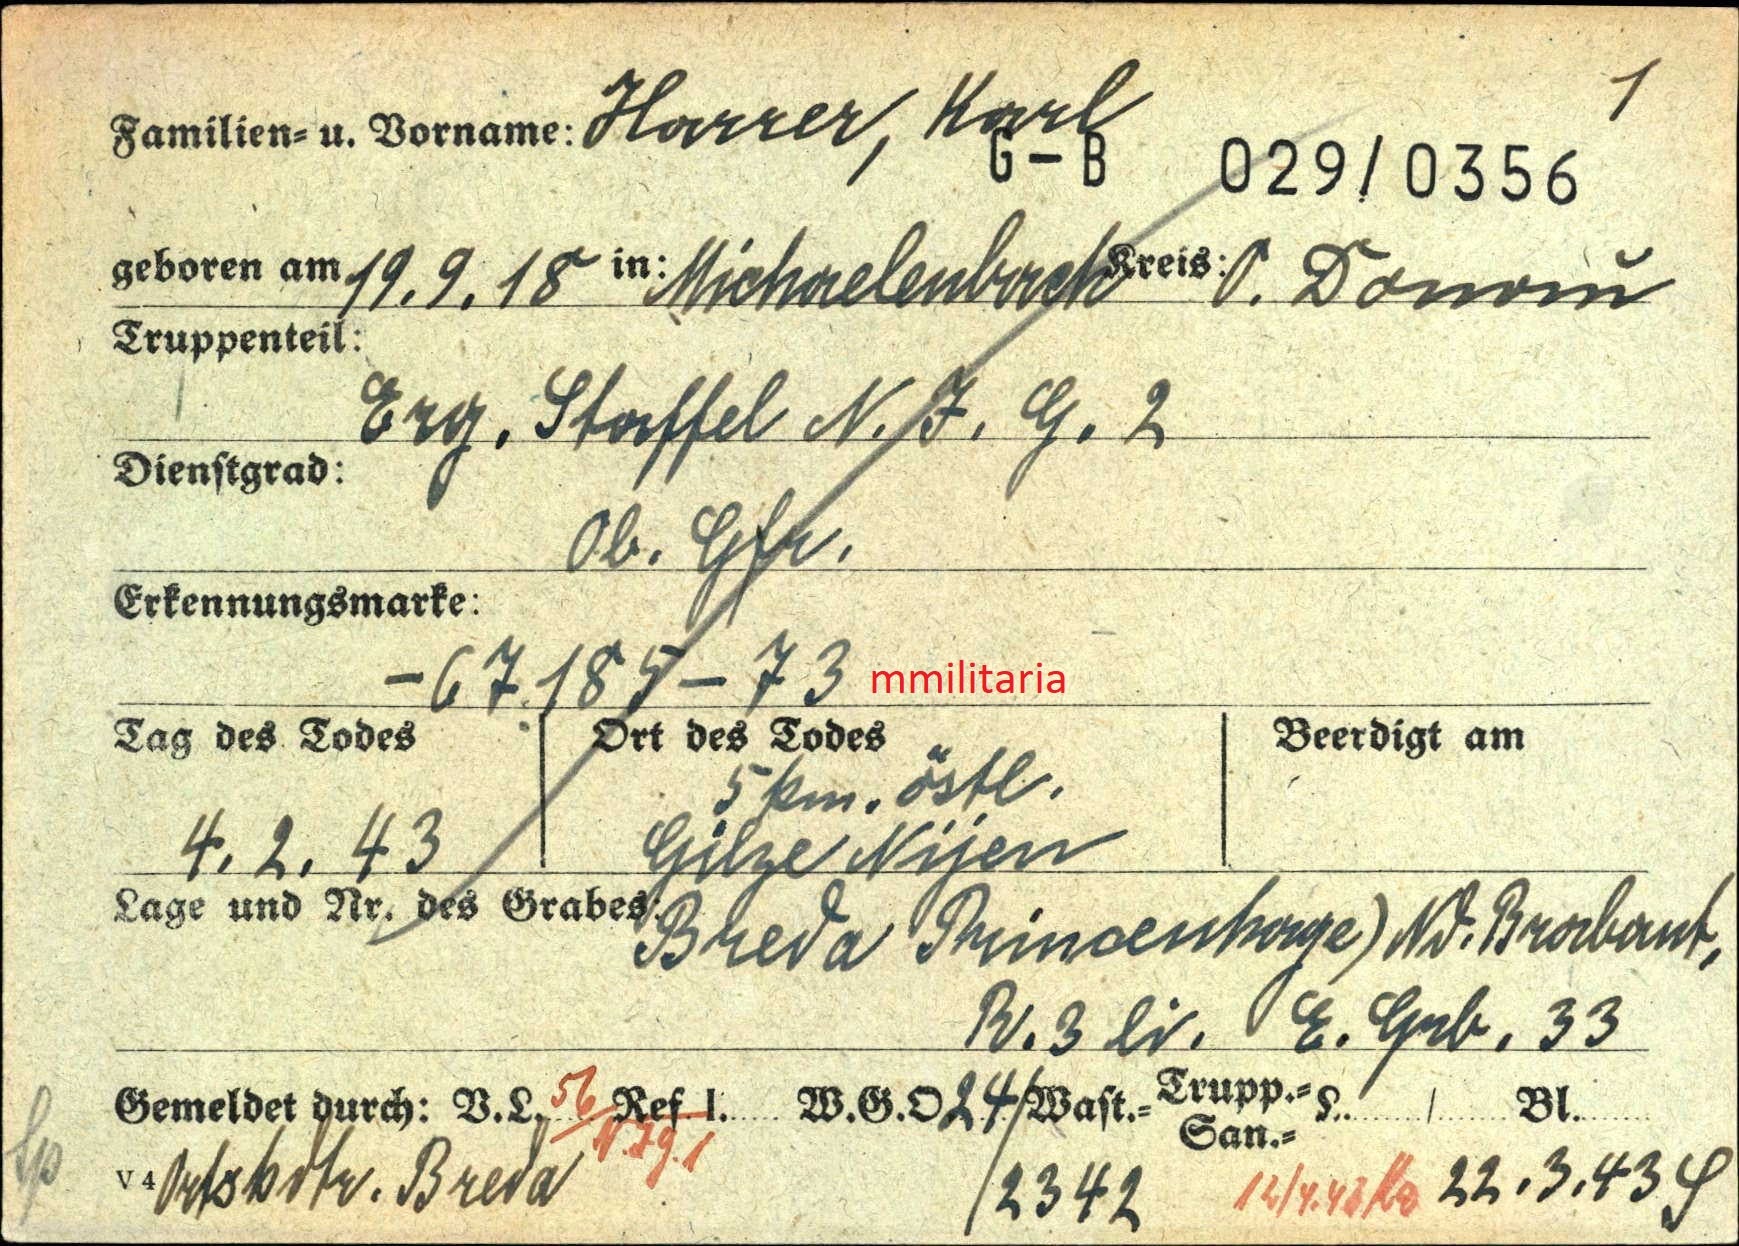 1
Familien- u. Vorname: Harrer, Karl
G-B 029/0356
geboren am 19.9.18 in: Michaelenbach Kreis: P. Donau
Truppenteil:
Erg. Staffel N.J.G. 2
Dienstgrad:
Ob. Gfr.
Erkennungsmarke:
-67185-73 mmilitaria
Tag des Todes Ort des Todes Beerdigt am
5 km. östl.
4.2.43 Gilze Nijen
Lage und Nr. des Grabes: Breda Princenhage) Nd. Brabant,
R. 3 li. E. Grb. 33
Gemeldet durch: V.L. 56 Ref I. W.G.O 24/ Wast.- Trupp.- San.- L. / Bl.
N.Jg. 1
V 4 Ortskdtr. Breda /2342 12/4.43 22.3.43